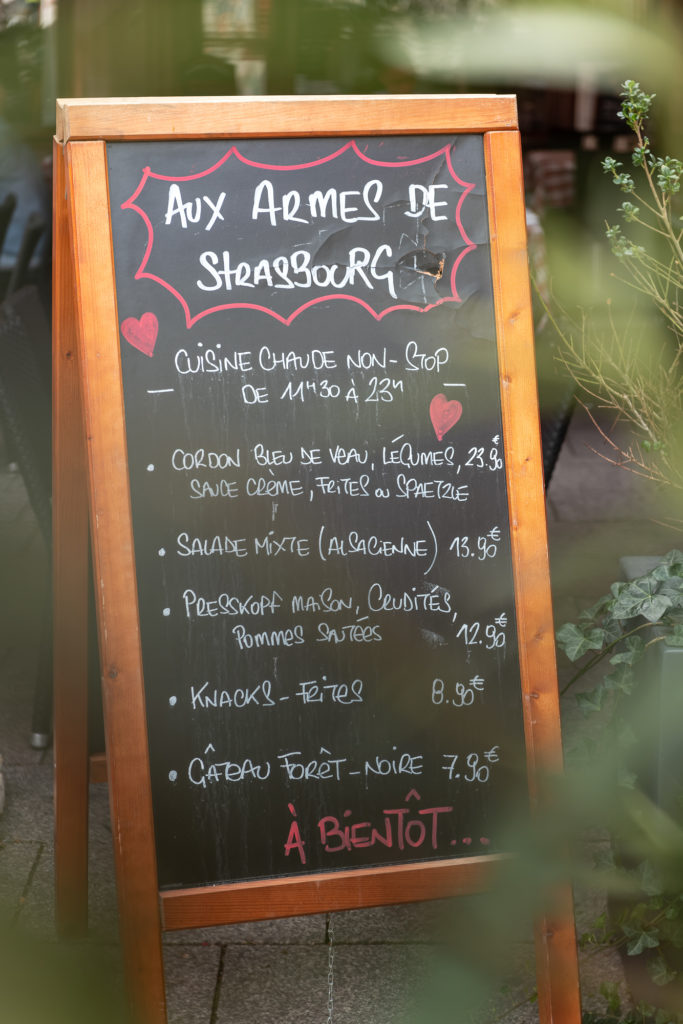 AUX ARMES DE
STRASBOURG
CUISINE CHAUDE NON-STOP
— DE 11H30 À 23H —
• CORDON BLEU DE VEAU, LÉGUMES, 23.90€
SAUCE CRÈME, FRITES OU SPAETZLE
• SALADE MIXTE (ALSACIENNE) 13.90€
• PRESSKOPF MAISON, CRUDITÉS,
POMMES SAUTÉES 12.90€
• KNACKS-FRITES 8.90€
• GÂTEAU FORÊT-NOIRE 7.90€
À BIENTÔT...